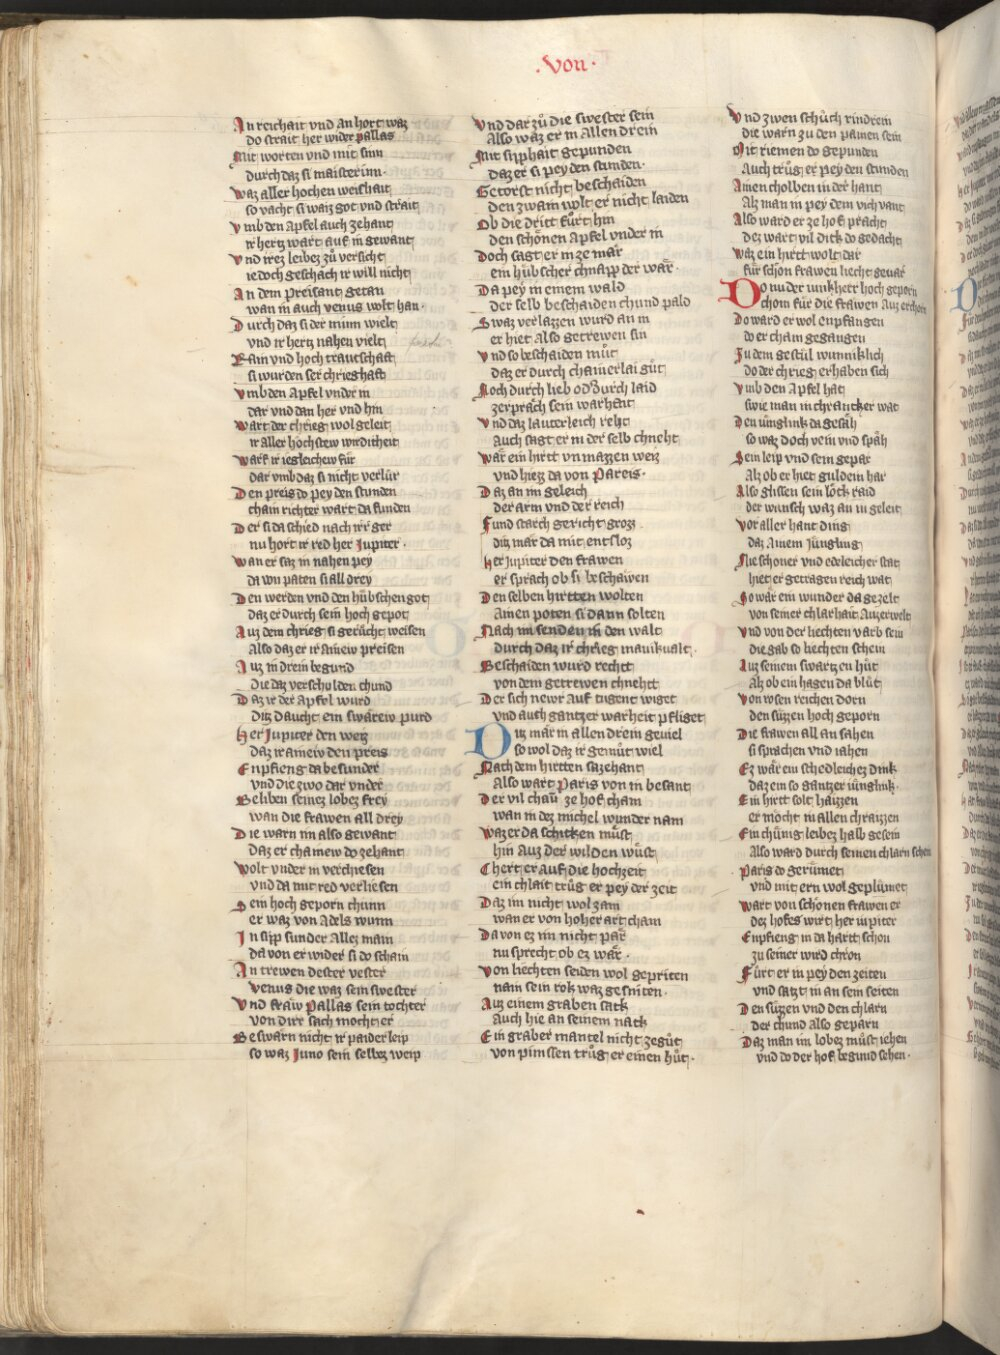 .Von.
An reichait vnd an hort waz
do strait her wider pallas
Mit worten vnd mit sinn
durch daz si maisterinn.
Waz aller hochen weishait
so vacht si waiz got vnd strait
Vmb den Apfel auch zehant
ir hertz wart auf in gewant
Vnd irez leibez zů versicht
iedoch geschach ir will nicht
An dem preis ant getan
wan in auch venus wolt han.
Durch daz si der minn wielt
vnd ir hertz nahen vielt
Rain vnd hoch trautschaft
si wurden ser chrieghaft
Vmb den Apfel vnder in
dar vnd dan her vnd hin
Wart der chrieg wol geleit
ir aller hochstew wirdicheit
Warf ir iegleichew für
dar vmb daz si nicht verlür
Den preis do pey den stunden
chain richter wart da funden
Der si da schied nach irr ger
nu hort ir red her Jupiter.
Wan er saz in nahen pey
da von paten si all drey
Den werden vnd den hübschen got
daz er durch sein hoch gepot
Auz dem chrieg si gerücht weisen
Also daz er ir ainew preisen
Auz in drein begund
Die daz verscholden chund
Daz ir der Apfel wurd
ditz daucht ein swärew purd
Her Jupiter den weiz
daz ir ainew den preis
Enpfieng da besunder
vnd die zwo dar vnder
Beliben seinez lobez frey
wan die frawen all drey
Die warn im also gewant
daz er chainew do zehant
Wolt vnder in verchiesen
vnd da mit red verliesen
Sein hoch geporn chunn
er waz von Adels wunn
In sipp sunder Allez main
da von er wider si do schain
An trewen dester vester
Venus die waz sein swester
Vnd fraw Pallas sein tochter
von dirr sach mocht er
Beswärn nicht ir paider leip
so waz Juno sein selbez weip
Vnd dar zů die swester sein
Also waz er in allen drein
Mit sipphait gepunden
daz er si pey den stunden.
Getorst nicht beschaiden
den zwain wolt er nicht laiden
Ob die dritt fürt hin
den schönen apfel vnder in
Doch sagt er in ze mär
ein hübscher chnapp der wär.
Da pey in einem wald
der selb beschaiden chund pald
Swaz verlazzen wurd an in
er hiet also getrewen sin
Vnd so beschaiden müt
daz er durch chainerlai güt
Noch durch lieb oder durch laid
zerpräch sein warhait
Vnd daz lauterleich reht
Auch sagt er in der selb chneht
Wär ein hirtt vnmazzen weiz
vnd hiez da von Pareis.
Daz an im geleich
der arm vnd der reich
Fund starch gericht groz.
ditz mär da mit entsloz
Her Jupiter den frawen
er sprach ob si beschawen
Den selben hirtten wolten
Ainen poten si dann solten
Nach im senden in den walt
durch daz ir chrieg manikualt.
Beschaiden wurd rechtt
von dem getrewen chnehtt
Der sich newr auf tugent wiget
vnd auch gantzer warheit pfliget
Ditz mär in allen drein geuiel
so wol daz ir gemüt wiel
Nach dem hirtten sazehant
Also wart Paris von in besant
Der vil chaů ze hof cham
wan in dez michel wunder nam
Waz er da schicken müst
hin Auz der wilden wüst
Chert er auf die hochzeit
ein chlait trůg er pey der zeit
Daz im nicht wol zam
wan er von hoher art cham
Da von ez im nicht pär
nu sprecht ob ez wär.
Von liechten seiden wol gepriten
nain sein rok waz gesniten.
Auz einem graben sack
auch hie an seinem nack
Ein graber mantel nicht ze gůt
von pinssen trůg er einen hůt.
Vnd zwen schůch rindrein
die warn zu den painen sein
Mit riemen do gepunden
Auch trůg er pey den stunden
Ainen cholben in der hant
Alz man in pey dem vich vant
Also ward er ze hof pracht
dez wart vil dick do gedacht
Waz ein hirtt wolt dar
für schön frawen liecht geuar
Do nu der iunkherr hoch geporn
chom für die frawen Auz erchorn
Do ward er wol enpfangen
do er cham gegangen
Zu dem gestül wunniklich
do der chrieg erhaben sich
Vmb den Apfel hat
swie man in chrancker wat
Den iüngling da gesäh
so waz doch vein vnd späh
Sein leip vnd sein gepar
Alz ob er hiet guldein har
Also glissen sein löck raid
der wunsch waz an in geleit
Vor aller hant ding
daz Ainem Jüngling
Nie schoner vnd edeleicher stat
hiet er getragen reich wat
So wär ein wunder da gezelt
von seiner chlarhait Auzerwelt
Vnd von der liechten varb sein
die gab so liechten schein
Auz seinem swartzen hůt
Alz ob ein hagen da blüt
Von rosen reichen dorn
den süzen hoch geporn
Die frawen all an sahen
si sprachen vnd iahen
Ez wär ein schedleichez dink
daz ein so gantzer iüngling.
Ein hirtt solt haizzen
er möcht in allen chraizzen
Ein chünig leibez halb gesein
Also ward durch seinen chlarn schein
Paris do gerümet
vnd mit ern wol geplümet
Wart von schonen frawen er
dez hofes wirt her iupiter
Enpfieng in da hartt schon
zu seiner wird chron
Fürt er in pey den zeiten
vnd satzt in an sein seiten
Den süzen vnd den chlarn
der chund also geparn
Daz man im lobez müst iehen
vnd do der hof begund sehen.